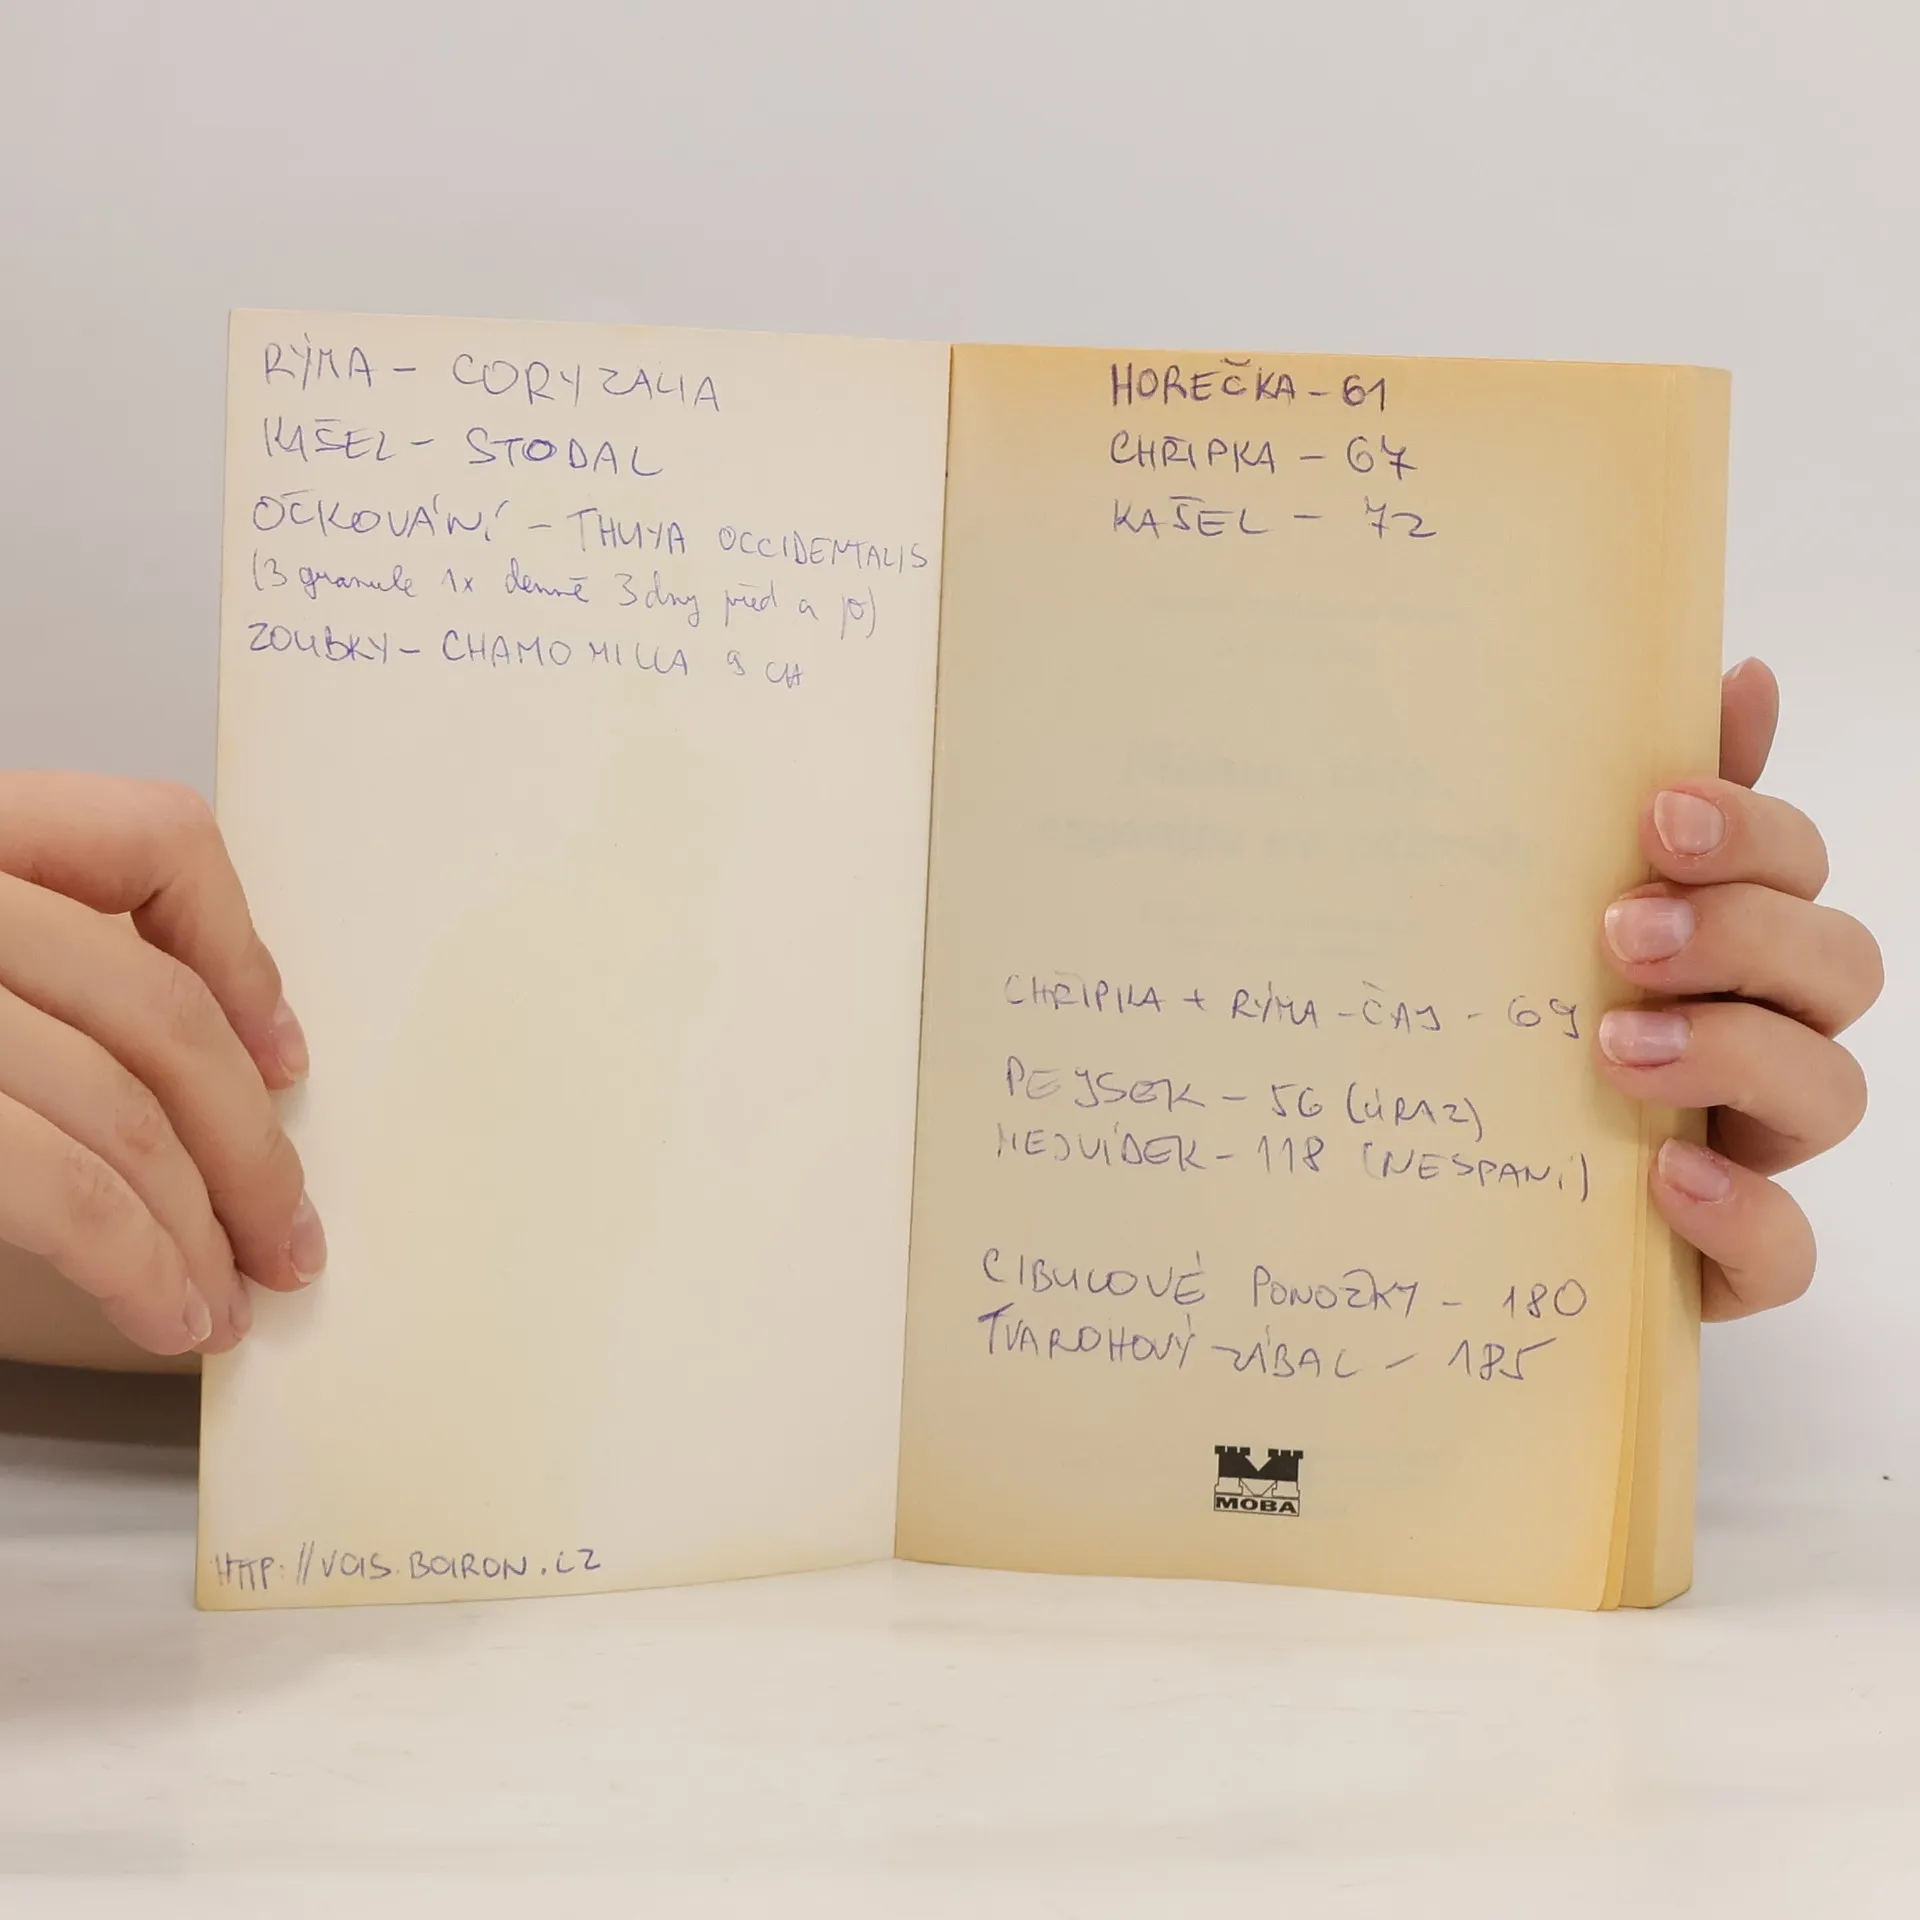 RÝMA – CORYZALIA
KAŠEL – STODAL
OČKOVÁNÍ – THUYA OCCIDENTALIS
(3 granule 1x denně 3 dny před a po)
ZOUBKY – CHAMOMILLA 9 CH
HTTP://VAS.BOIRON.CZ
HOREČKA – 61
CHŘIPKA – 67
KAŠEL – 72
CHŘIPKA + RÝMA – ČAJ – 69
PEJSEK – 56 (ÚRAZ)
MEDVÍDEK – 118 (NESPANÍ)
CIBULOVÉ PONOŽKY – 180
TVAROHOVÝ ZÁBAL – 185
MOBA